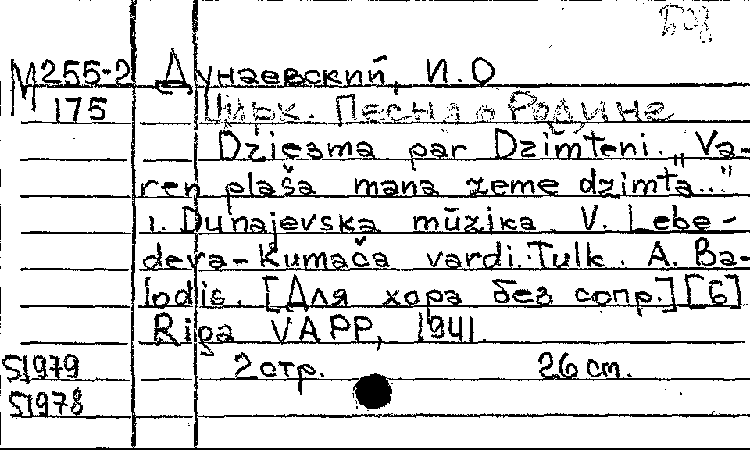 М 255-2 Дунаевский, И.О
175 Цирк. Песня о Родине
Dziesma par Dzimteni. „Va-
ren plaša mana zeme dzimta..."
i. Dunajevska mūzika V. Lebe-
deva-Kumača vardi. Tulk. A. Ba-
lodis. [Для хора без сопр.] [6]
Riga VAPP, 1941.
51979 2 стр. 26 cm.
51978